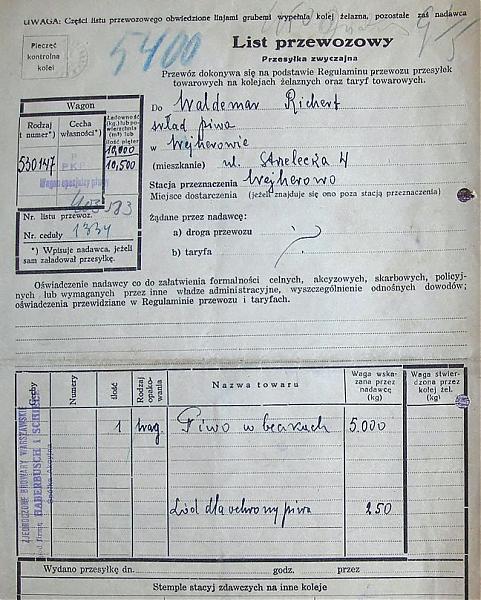 UWAGA: Części listu przewozowego obwiedzione linjami grubemi wypełnia kolej żelazna, pozostałe zaś nadawca
Pieczęć
kontrolna
kolei
5400
List przewozowy
Przesyłka zwyczajna
Przewóz dokonywa się na podstawie Regulaminu przewozu przesyłek
towarowych na kolejach żelaznych oraz taryf towarowych.
Wagon
Rodzaj
i numer*)
Cecha
własności*)
Ładowność
(kg.) lub po-
wierzchnia
(m²) lub
ilość pięter
530147
P
PKP
Wagon specjalny piwny
10,000
10,500
Nr. listu przewoz. 403983
Nr. ceduły 1334
*) Wpisuje nadawca, jeżeli
sam załadował przesyłkę.
Do Waldemar Richert
skład piwa
w Wejherowie
(mieszkanie) ul. Strzelecka 4
Stacja przeznaczenia Wejherowo
Miejsce dostarczenia (jeżeli znajduje się ono poza stacją przeznaczenia)
Żądane przez nadawcę:
a) droga przewozu
b) taryfa
Oświadczenie nadawcy co do załatwienia formalności celnych, akcyzowych, skarbowych, policyj-
nych lub wymaganych przez inne władze administracyjne, wyszczególnienie odnośnych dowodów;
oświadczenia przewidziane w Regulaminie przewozu i taryfach.
Cechy
Numery
Ilość
Rodzaj
opako-
wania
Nazwa towaru
Waga wska-
zana przez
nadawcę
(kg)
Waga stwier-
dzona przez
kolej żel.
(kg)
ZJEDNOCZONE BROWARY WARSZAWSKIE
pod firmą HABERBUSCH i SCHIELE
Spółka Akcyjna
1 wag. Piwo w beczkach 5.000
Lód dla ochrony piwa 250
Wydano przesyłkę dn. godz. przez
Stemple stacyj zdawczych na inne koleje